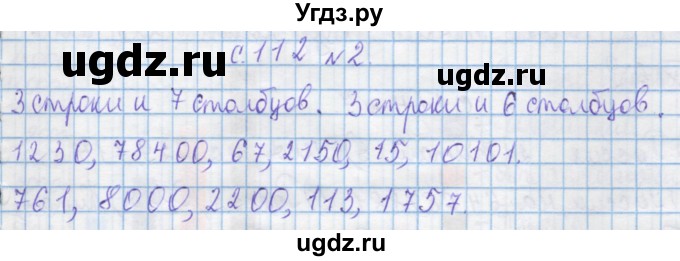 Угдз.ру
ugdz.ru
ugdz.ru
с. 112 №2.
3 строки и 7 столбцов. 3 строки и 6 столбцов.
1230, 78400, 67, 2150, 15, 10101.
761, 8000, 2200, 113, 1757.
ugdz.ru